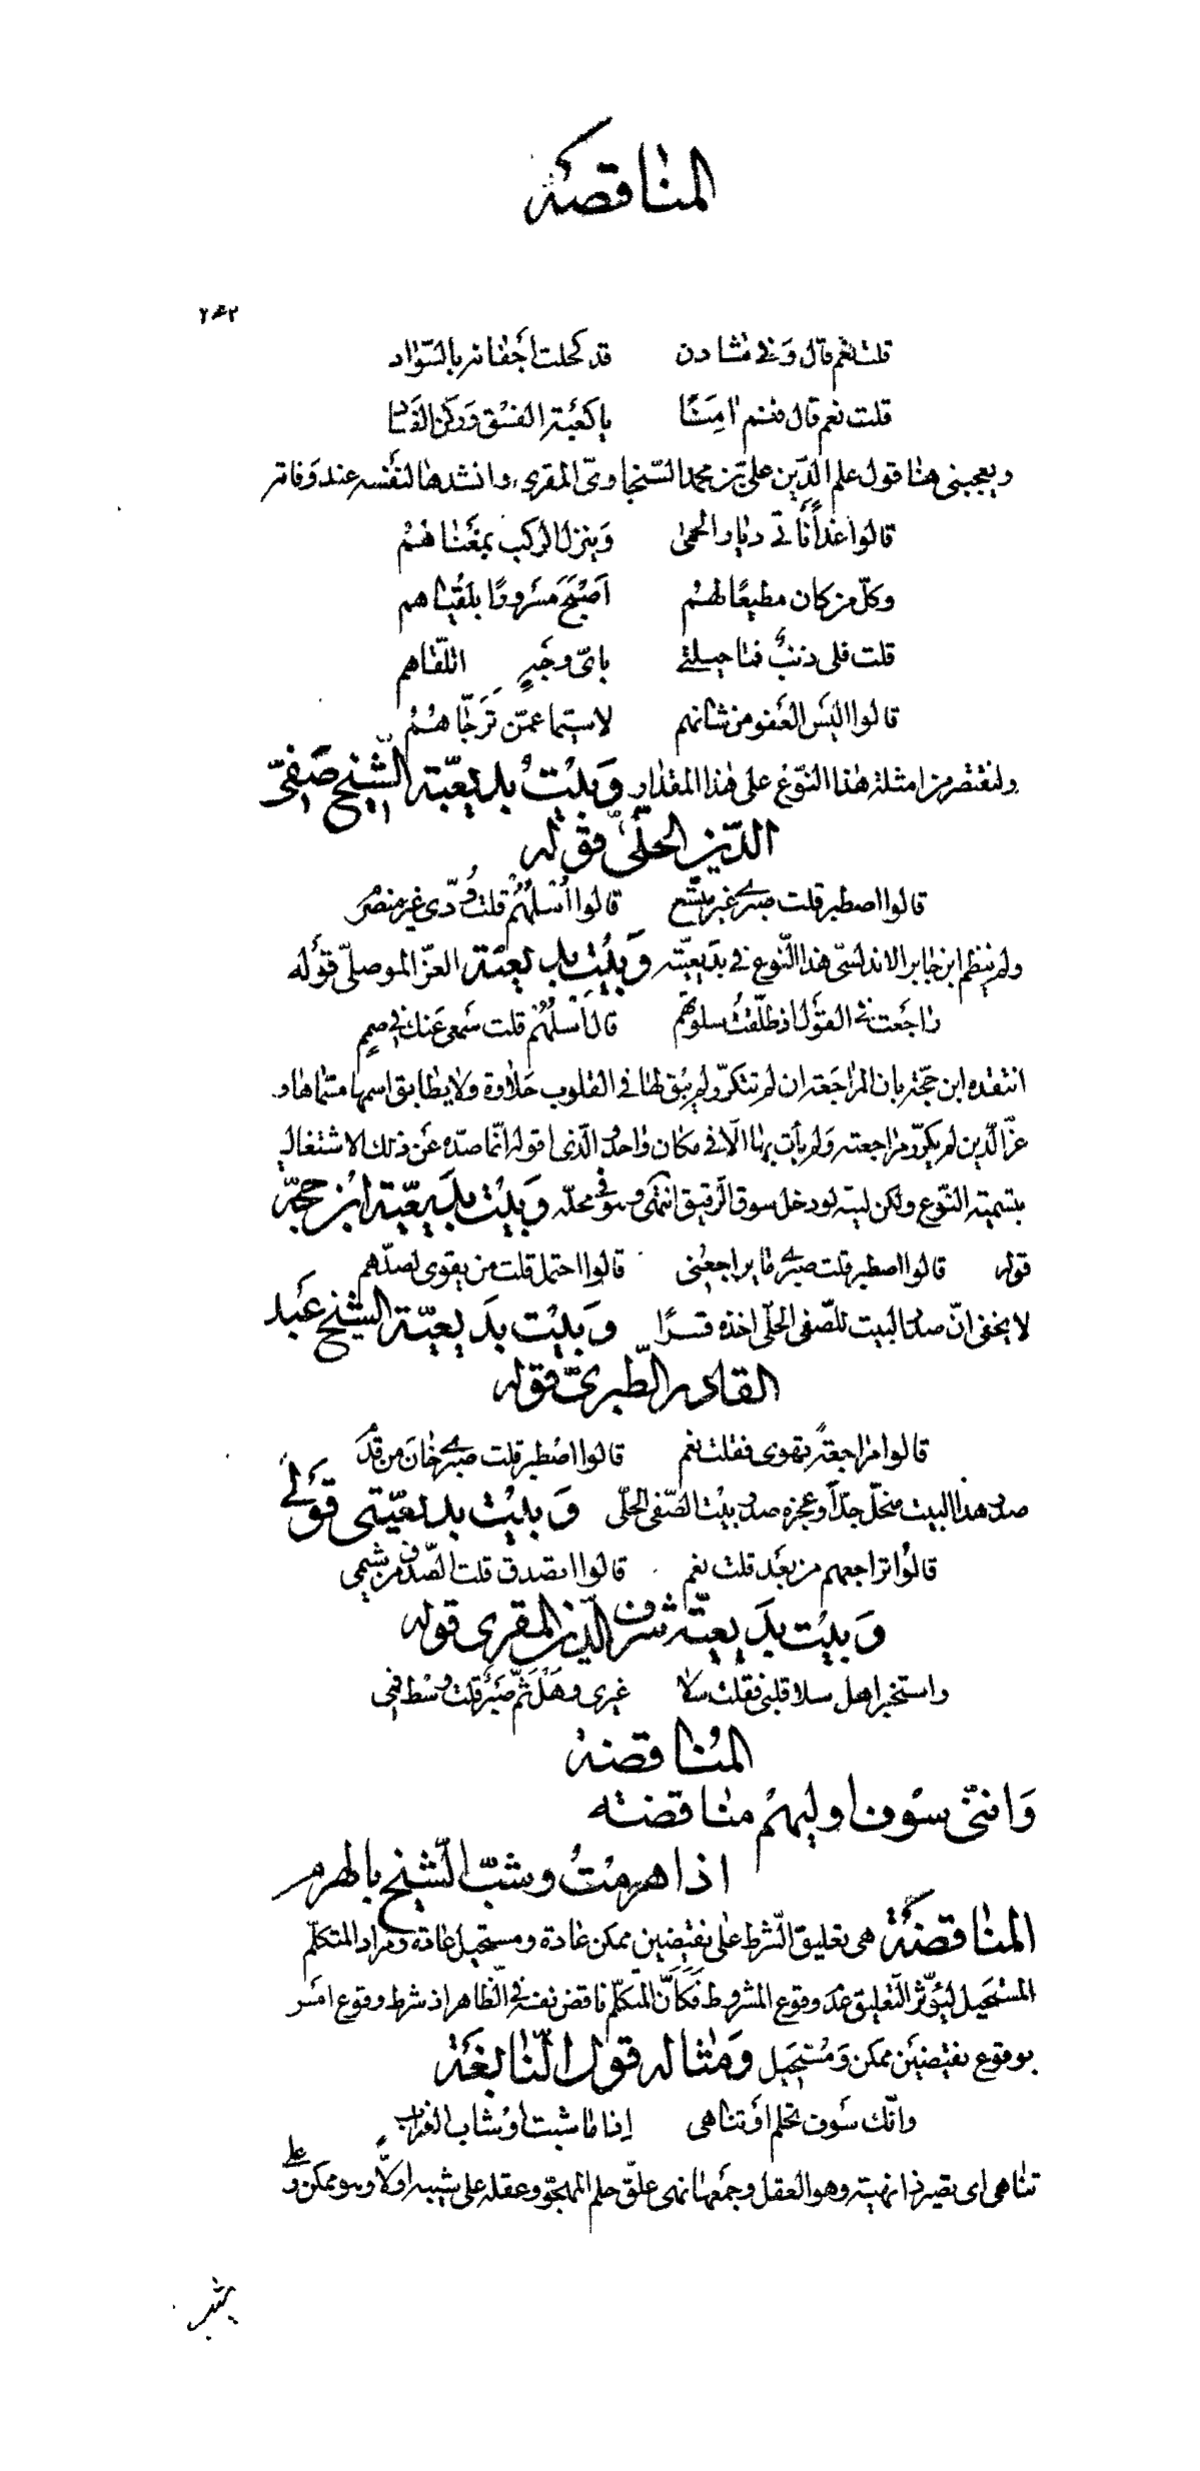 المناقضة
٢٤٢
قلت نعم قال وفي شادن قد كحلت أجفانه بالسواد
قلت نعم قال فنم امنا يا كعبة الفسق وركن الفساد
ويعجبني هنا قول علم الدين علي بن محمد السنجاوي المقري، وانشدها لنفسه عند وفاته
قالوا غداً نأتي ديار الحمى وينزل الركب بمغناهم
وكل من كان مطيعاً لهم أصبح مسروراً بلقياهم
قلت فلي ذنب فما حيلتي باي وجه اتلقاهم
قالوا اليس العفو من شانهم لا سيما عمن ترجاهم
ولنقتصر من امثلة هذا النوع على هذا المقدار وبيت بديعية الشيخ صفي
الدين الحلي قوله
قالوا اصطبر قلت صبري غير متسع قالوا اسلهم قلت ودي غير منصرم
ولم ينظم ابن جابر الاندلسي هذا النوع في بديعيته وبيت بديعية العز الموصلي قوله
راجعت في القول اذ طلقت سلوتهم قال اسلهم قلت سمعي عنك في صمم
انتقده ابن حجة بان المراجعة ان لم تتكرر لم يبق لها في القلوب حلاوة ولا يطابق اسمها مسماها و
عز الدين لم يكرر مراجعته ولم يأت بها الا في مكان واحد الذي اقوله انما صده عن ذلك الاشتغال
بتسمية النوع ولكن ليته لو دخل سوق الرقيق انتهى وهو في محله وبيت بديعية ابن حجة
قوله قالوا اصطبر قلت صبري ما يراجعني قالوا احتمل قلت من يقوى لصدهم
لا يخفى ان صدر البيت للصفي الحلي اخذه قسراً وبيت بديعية الشيخ عبد
القادر الطبري قوله
قالوا مراجعة تهوى فقلت نعم قالوا اصطبر قلت صبري خان من قدم
صدر هذا البيت منحل جداً وعجزه صدر بيت الصفي الحلي وبيت بديعيتي قولي
قالوا تراجعهم من بعد قلت نعم قالوا اتصدق قلت الصدق من شيمي
وبيت بديعية شرف الدين المقري قوله
واستخبر اهل سلا قلبي فقلت سلا غيري وهل ثم صبر قلت وسط فمي
المناقضة
وانني سوف اوليهم مناقضة
اذا هرمت وشب الشيخ بالهرم
المناقضة هي تعليق الشرط على نقيضين ممكن عادة ومستحيل عادة ومراد المتكلم
المستحيل ليؤثر التعليق عدم وقوع المشروط فكأن المتكلم ناقض نفسه في الظاهر اذ شرط وقوع امر
بوقوع نقيضين ممكن ومستحيل ومثاله قول النابغة
وانك سوف تحلم او تناهى إذا ما شبت او شاب الغراب
تناهى اي تصير ذا نهية وهو العقل وجمعها نهى علق حلم المهجو وعقله على شيبه اولاً وهو ممكن وعلى